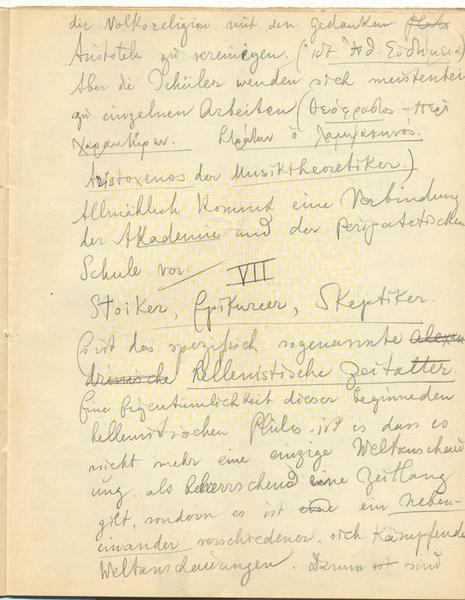 die Volksreligion mit den Gedanken
Aristotels zu vereinigen. (τὰ Ἠθ. Εὐδήμεια)
Aber die Schüler wenden sich meistenteil
zu einzelnen Arbeiten (Θεόφραστος - Περὶ
Χαρακτήρων. Στράτων ὁ Λαμψακηνός.
Aristoxenos der Musiktheoretiker.)
Allmählich kommt eine Verbindung
der Akademie und der peripatetischen
Schule vor.
VII
Stoiker, Epikureer, Skeptiker.
Es ist das spezifisch sogenannte alexan
drinische Hellenistische Zeitalter.
Eine Eigentümlichkeit dieser beginneden
hellenistischen Philos. ist es dass es
nicht mehr eine einzige Weltanschau
ung als beherrschend eine Zeitlang
gilt, sondern es ist eine ein Neben-
einander verschiedener, sich kämpfende
Weltanschauungen. Darum ist sind